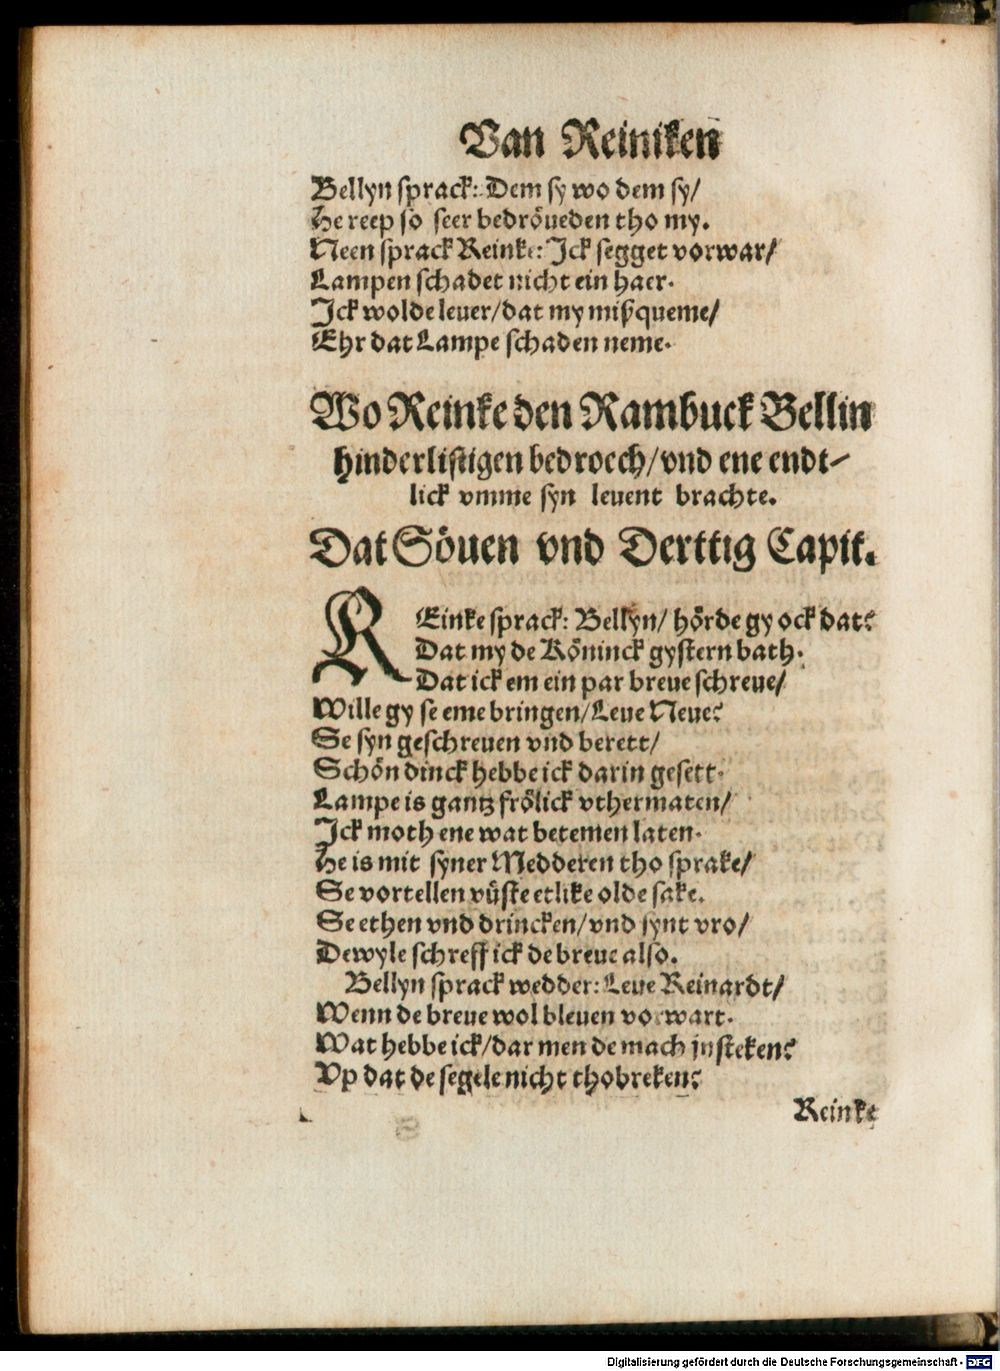 Van Reiniken
Bellyn sprack: Dem sy wo dem sy/
He reep so seer bedröueden tho my.
Neen sprack Reinke: Ick segget vorwar/
Lampen schadet nicht ein haer.
Ick wolde leuer/dat my mißqueme/
Ehr dat Lampe schaden neme.
Wo Reinke den Rambuck Bellin
hinderlistigen bedroech/vnd ene endt-
lick vmme syn leuent brachte.
Dat Söuen vnd Derttig Capit.
REinke sprack: Bellyn/ hörde gy ock dat?
Dat my de Köninck gystern bath.
Dat ick em ein par breue schreue/
Wille gy se eme bringen/Leue Neue?
Se syn geschreuen vnd berett/
Schön dinck hebbe ick darin gesett.
Lampe is gantz frölick vthermaten/
Ick moth ene wat betemen laten.
He is mit syner Medderen tho sprake/
Se vortellen vüste etlike olde sake.
Se ethen vnd drincken/vnd synt vro/
Dewyle schreff ick de breue also.
Bellyn sprack wedder: Leue Reinardt/
Wenn de breue wol bleuen vorwart.
Wat hebbe ick/dar men de mach insteken?
Vp dat de segele nicht thobreken?
Reinke
Digitalisierung gefördert durch die Deutsche Forschungsgemeinschaft - DFG